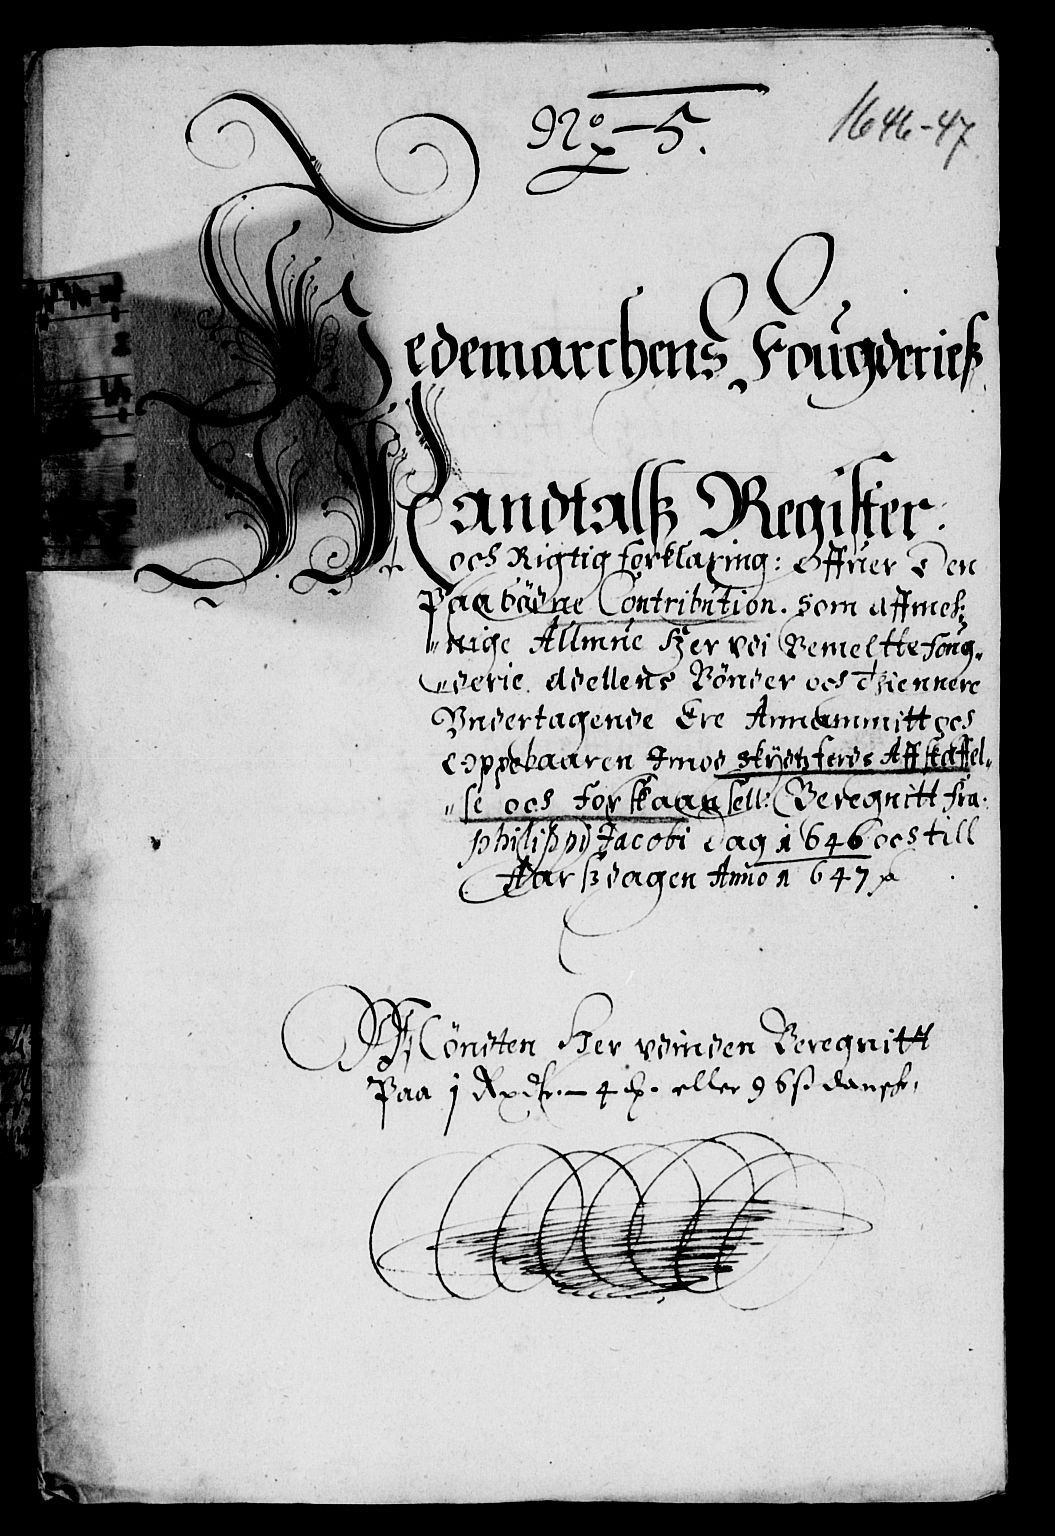 No 5.
1646-47
Hedemarchens Fougderieß
Mandtalß Register.
och Rigtig forklaring: Offuer Den
Paabödne Contribution. som aff meß
"nige Allmue Her vdi Bemeltte foug"
"derie. Adellens Bönder och Thiennere
Vndertagende Ere Annammitt och
Oppebaaren Imod skydtzferds Affskaffel"
"se och forskaansell: Beregnitt fra
Philippi Jacobi Dag 1646 och till
Aarßdagen Anno 1647
Mönten Her vdinden Beregnitt
Paa 1 Rxdlr. 4 eller 96 ß dansk.